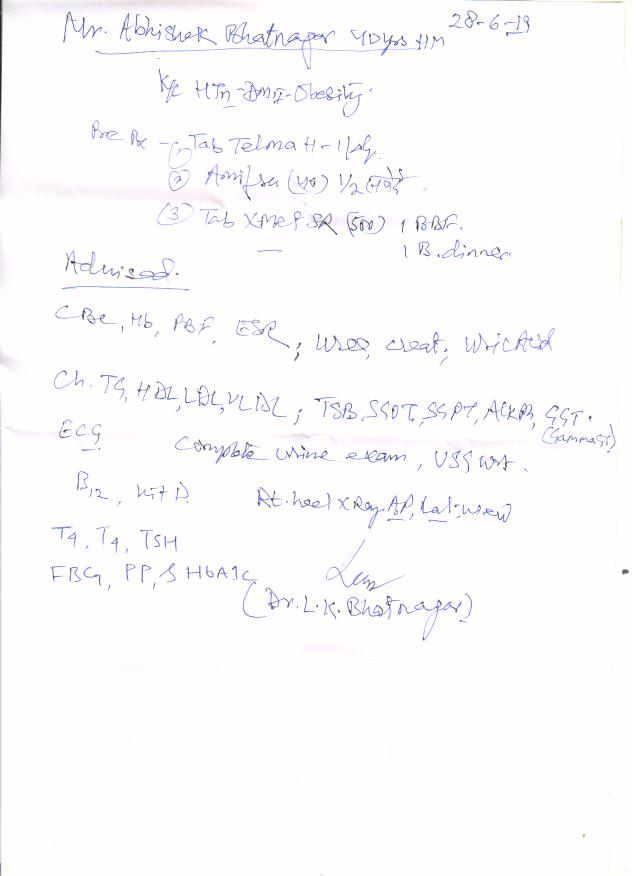 28-6-19
Mr. Abhishek Bhatnagar 40yrs HM
K/C HTn-DMII-Obesity.
Rx - (1) Tab Telma H - 1/dy.
(2) (40) 1/2
(3) Tab XMet SR (500) 1 BBF.
1 B. dinner.
Advised.
CBC, Hb, PBF, ESR; Urea, creat; Uric Acid
Ch. TG, HDL, LDL, VLDL; TSB, SGOT, SGPT, AlkPh, GGT.
(GammaGT)
ECG Complete urine exam, USG WA.
B12, Vit D. Rt. heel X Ray AP, Lat. view
T4, T4, TSH
FBG, PP, & HbA1C
(Dr. L. K. Bhatnagar)